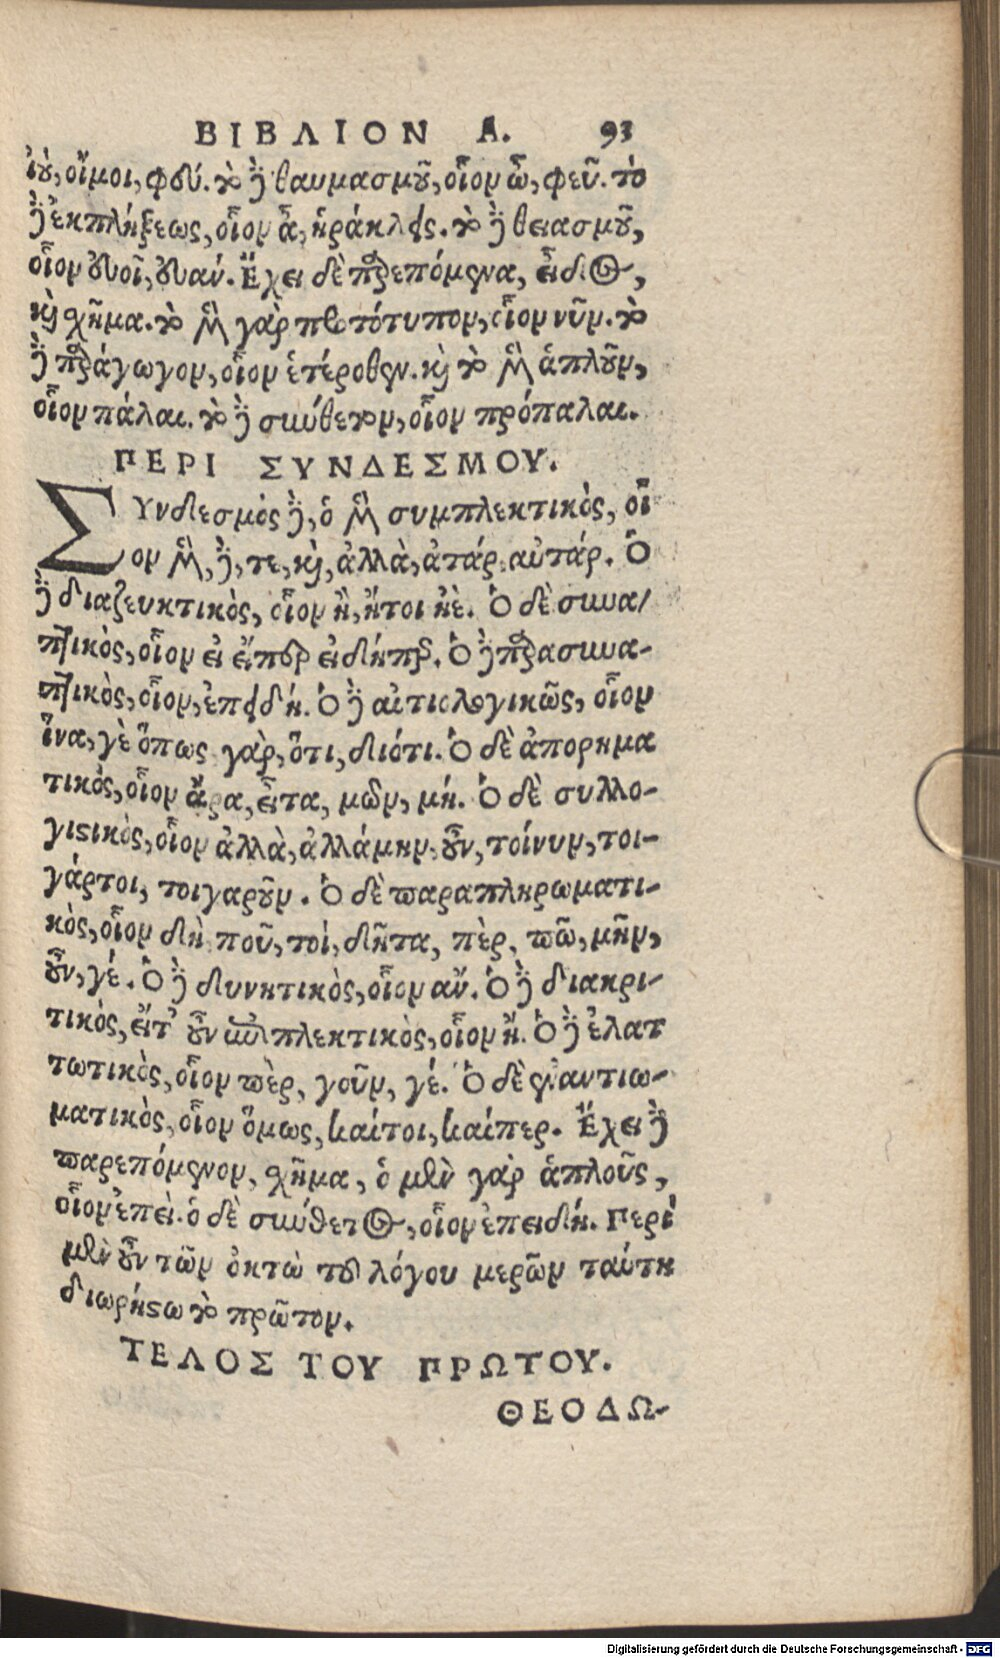 ΒΙΒΛΙΟΝ Α. 93
ἰοὺ, οἴμοι, φεύ. τὸ δὲ θαυμασμοῦ, οἷον ὦ, φεῦ. τὸ
δὲ ἐκπλήξεως, οἷον ἆ, ἡράκλεις. τὸ δὲ θειασμοῦ,
οἷον εὐοῖ, εὐάν. Ἔχει δὲ παρεπόμενα, εἶδος,
καὶ χῆμα. τὸ μὲν γὰρ πρωτότυπον, οἷον νῦν. τὸ
δὲ παράγωγον, οἷον ἑτέροθεν. καὶ τὸ μὲν ἁπλοῦν,
οἷον πάλαι. τὸ δὲ σύνθετον, οἷον πρόπαλαι.
ΠΕΡΙ ΣΥΝΔΕΣΜΟΥ.
ΣΥνδεσμός δὲ, ὁ μὲν συμπλεκτικὸς, οἷ
ον μὲν, δὲ, τε, καὶ, ἀλλὰ, ἀτάρ, αὐτάρ. Ὁ
δὲ διαζευκτικὸς, οἷον ἢ, ἤτοι ἠὲ. Ὁ δὲ συνα/
πτικὸς, οἷον εἰ εἴπερ εἰδήπερ. Ὁ δὲ παρασυνα-
πτικὸς, οἷον, ἐπειδή. Ὁ δὲ αἰτιολογικῶς, οἷον
ἵνα, γὲ ὅπως γὰρ, ὅτι, διότι. Ὁ δὲ ἀπορημα
τικὸς, οἷον ἆρα, εἶτα, μῶν, μή. Ὁ δὲ συλλο-
γιστικὸς, οἷον ἀλλὰ, ἀλλάμην, οὖν, τοίνυν, τοι-
γάρτοι, τοιγαροῦν. Ὁ δὲ παραπληρωματι-
κὸς, οἷον δὴ, ποῦ, τοί, δῆτα, πὲρ, πῶ, μῆν,
οὖν, γέ. Ὁ δὲ δυνητικὸς, οἷον αὖ. Ὁ δὲ διακρι-
τικὸς, εἴτ' οὖν πλεκτικὸς, οἷον ἤ. Ὁ δὲ ἐλατ
τωτικὸς, οἷον πὲρ, γοῦν, γέ. Ὁ δὲ ἐναντιω-
ματικὸς, οἷον ὅμως, καίτοι, καίπερ. Ἔχει δὲ
παρεπόμενον, χῆμα, ὁ μὲν γὰρ ἁπλοῦς,
οἷον ἐπεὶ. ὁ δὲ σύνθετος, οἷον ἐπειδή. Περὶ
μὲν οὖν τῶν ὀκτὼ τοῦ λόγου μερῶν ταύτη
διωρήστω τὸ πρῶτον.
ΤΕΛΟΣ ΤΟΥ ΠΡΩΤΟΥ.
ΘΕΟΔΩ-
Digitalisierung gefördert durch die Deutsche Forschungsgemeinschaft - DFG